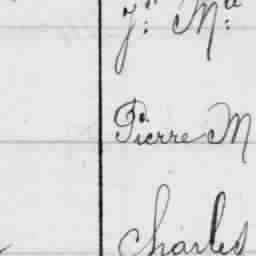 Jn: Ma:
Pierre M
Charles